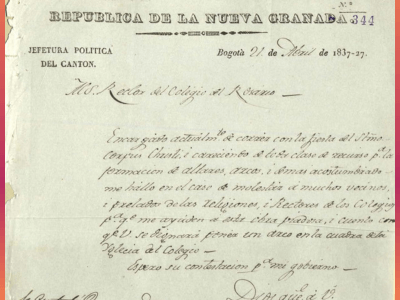 REPUBLICA DE LA NUEVA GRANADA.
N.º
344
JEFETURA POLITICA
DEL CANTON.
Bogotá 21 de Abril de 1837-27.
M. S. Rector del Colegio del Rosario
Encargado actualm.te de correr con la fiesta del SSmo
Corpus Christi, i careciendo de toda clase de recurso p.a la
formacion de altares, arcos, i demas acostumbrado
me hallo en el caso de molestar á muchos vecinos,
i prelados de las religiones, i Rectores de los Colegios
p.a q.e me ayuden a esta obra piadosa; i cuento con
q.e U. se dignará poner un arco en la cuadra de la
Iglecia del Colegio.
Espero su contestacion p.a mi gobierno.
Dios gue. á U.